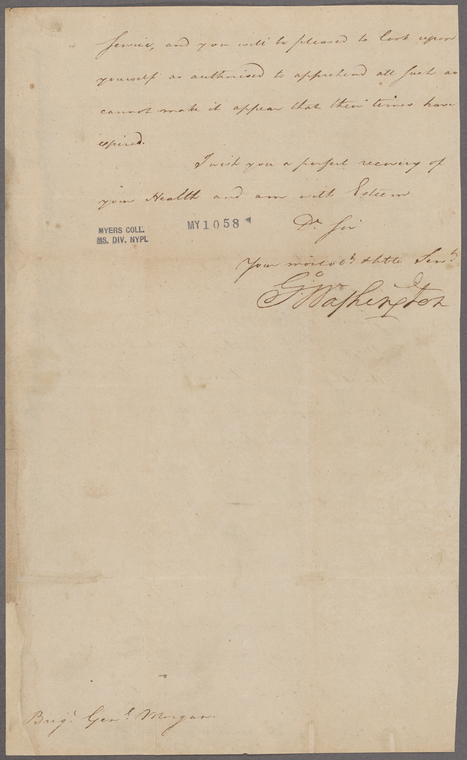 Service, and you will be pleased to look upon
yourself as authorised to apprehend all such as
cannot make it appear that their times have
expired.
I wish you a perfect recovery of
your Health and am with Esteem
Dr. Sir
MYERS COLL.
MS. DIV. NYPL
MY 1058
Your most obt. & hble Servt.
Go. Washington
Brigr. Genl. Morgan.